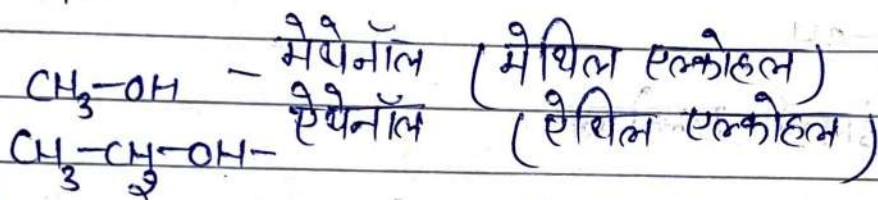 CH₃-OH - मेथेनॉल (मेथिल एल्कोहल)
CH₃-CH₂-OH- ऐथेनॉल (ऐथिल एल्कोहल)